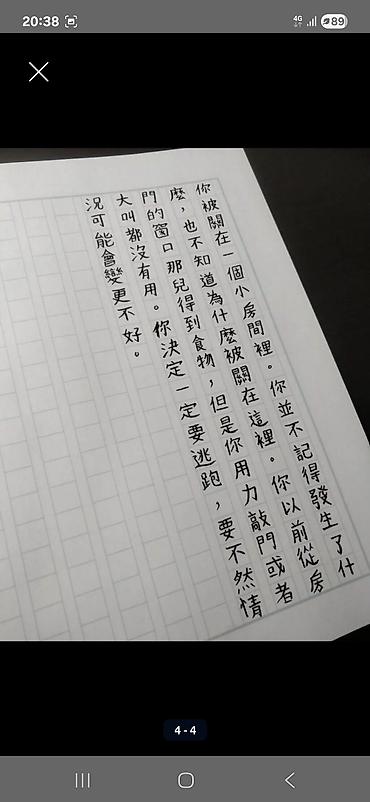 20:38 4G 89
你被關在一個小房間裡。你並不記得發生了什
麼，也不知道為什麼被關在這裡。你以前從房
門的窗口那兒得到食物，但是你用力敲門或者
大叫都沒有用。你決定一定要逃跑，要不然情
況可能會變更不好。
4-4